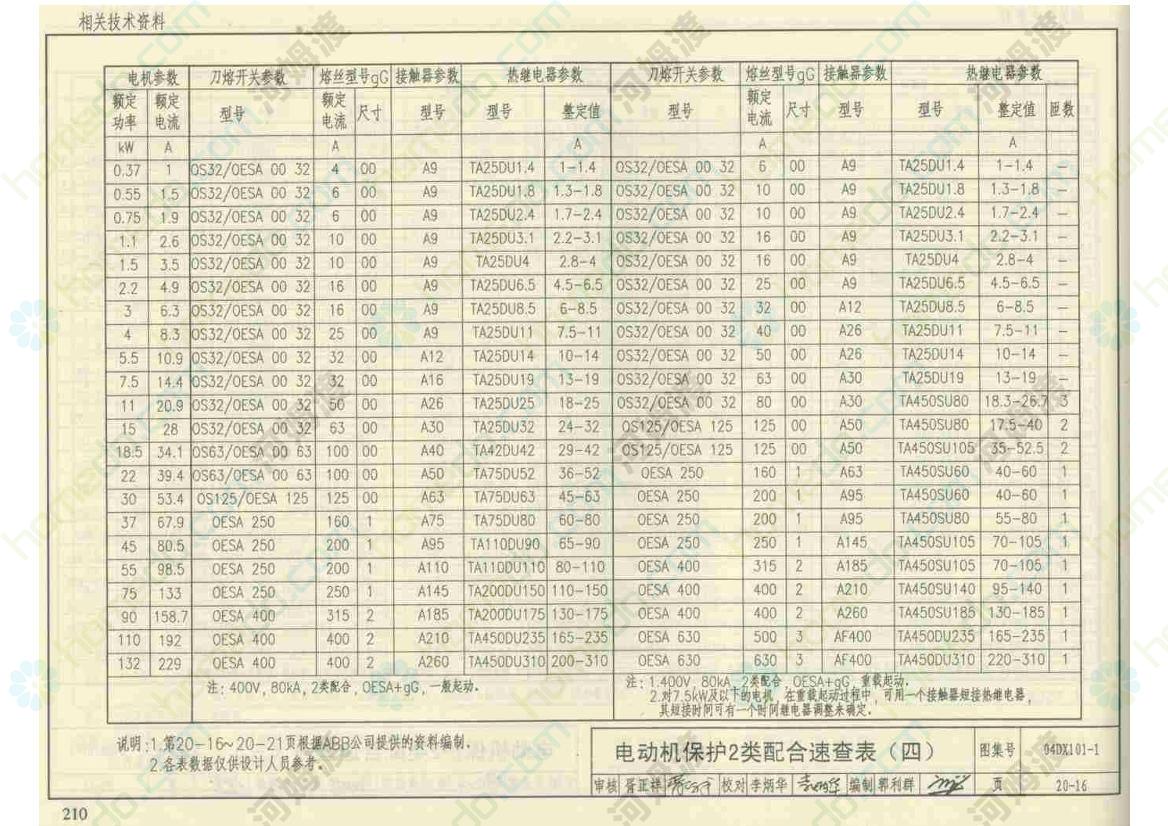 相关技术资料
电机参数 刀熔开关参数 熔丝型号gG 接触器参数 热继电器参数 刀熔开关参数 熔丝型号gG 接触器参数 热继电器参数
额定功率 额定电流 型号 额定电流 尺寸 型号 型号 整定值 型号 额定电流 尺寸 型号 型号 整定值 匝数
kW A A A A A
0.37 1 OS32/OESA 00 32 4 00 A9 TA25DU1.4 1-1.4 OS32/OESA 00 32 6 00 A9 TA25DU1.4 1-1.4 —
0.55 1.5 OS32/OESA 00 32 6 00 A9 TA25DU1.8 1.3-1.8 OS32/OESA 00 32 10 00 A9 TA25DU1.8 1.3-1.8 —
0.75 1.9 OS32/OESA 00 32 6 00 A9 TA25DU2.4 1.7-2.4 OS32/OESA 00 32 10 00 A9 TA25DU2.4 1.7-2.4 —
1.1 2.6 OS32/OESA 00 32 10 00 A9 TA25DU3.1 2.2-3.1 OS32/OESA 00 32 16 00 A9 TA25DU3.1 2.2-3.1 —
1.5 3.5 OS32/OESA 00 32 10 00 A9 TA25DU4 2.8-4 OS32/OESA 00 32 16 00 A9 TA25DU4 2.8-4 —
2.2 4.9 OS32/OESA 00 32 16 00 A9 TA25DU6.5 4.5-6.5 OS32/OESA 00 32 25 00 A9 TA25DU6.5 4.5-6.5 —
3 6.3 OS32/OESA 00 32 16 00 A9 TA25DU8.5 6-8.5 OS32/OESA 00 32 32 00 A12 TA25DU8.5 6-8.5 —
4 8.3 OS32/OESA 00 32 25 00 A9 TA25DU11 7.5-11 OS32/OESA 00 32 40 00 A26 TA25DU11 7.5-11 —
5.5 10.9 OS32/OESA 00 32 32 00 A12 TA25DU14 10-14 OS32/OESA 00 32 50 00 A26 TA25DU14 10-14 —
7.5 14.4 OS32/OESA 00 32 32 00 A16 TA25DU19 13-19 OS32/OESA 00 32 63 00 A30 TA25DU19 13-19 —
11 20.9 OS32/OESA 00 32 50 00 A26 TA25DU25 18-25 OS32/OESA 00 32 80 00 A30 TA450SU80 18.3-26.7 3
15 28 OS32/OESA 00 32 63 00 A30 TA25DU32 24-32 OS125/OESA 125 125 00 A50 TA450SU80 17.5-40 2
18.5 34.1 OS63/OESA 00 63 100 00 A40 TA42DU42 29-42 OS125/OESA 125 125 00 A50 TA450SU105 35-52.5 2
22 39.4 OS63/OESA 00 63 100 00 A50 TA75DU52 36-52 OESA 250 160 1 A63 TA450SU60 40-60 1
30 53.4 OS125/OESA 125 125 00 A63 TA75DU63 45-63 OESA 250 200 1 A95 TA450SU60 40-60 1
37 67.9 OESA 250 160 1 A75 TA75DU80 60-80 OESA 250 200 1 A95 TA450SU80 55-80 1
45 80.5 OESA 250 200 1 A95 TA110DU90 65-90 OESA 250 250 1 A145 TA450SU105 70-105 1
55 98.5 OESA 250 200 1 A110 TA110DU110 80-110 OESA 400 315 2 A185 TA450SU105 70-105 1
75 133 OESA 250 250 1 A145 TA200DU150 110-150 OESA 400 400 2 A210 TA450SU140 95-140 1
90 158.7 OESA 400 315 2 A185 TA200DU175 130-175 OESA 400 400 2 A260 TA450SU185 130-185 1
110 192 OESA 400 400 2 A210 TA450DU235 165-235 OESA 630 500 3 AF400 TA450DU235 165-235 1
132 229 OESA 400 400 2 A260 TA450DU310 200-310 OESA 630 630 3 AF400 TA450DU310 220-310 1
注: 400V, 80kA, 2类配合, OESA+gG, 一般起动.
注: 1.400V, 80kA, 2类配合, OESA+gG, 重载起动.
2.对7.5kW及以下的电机, 在重载起动过程中, 可用一个接触器短接热继电器,
其短接时间可有一个时间继电器调整来确定.
说明: 1.第20-16~20-21页根据ABB公司提供的资料编制.
2.各表数据仅供设计人员参考.
电动机保护2类配合速查表（四） 图集号 04DX101-1
审核 胥正祥 校对 李炳华 编制 郭利群 页 20-16
210